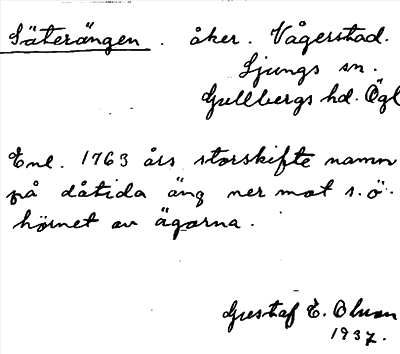 Säterängen. åker. Vågerstad.
Ljungs sn.
Gullbergs hd. Ögl
Enl. 1763 års storskifte namn
på dåtida äng ner mot s.ö.
hörnet av ägorna.
Gustaf E. Olson
1937.